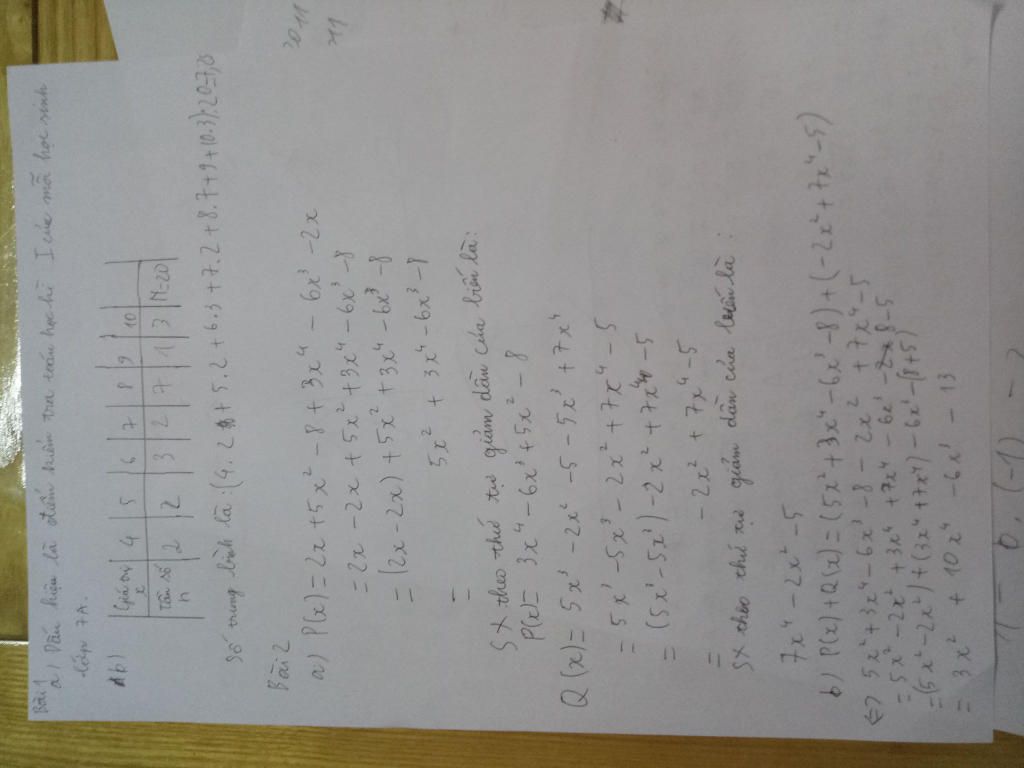 Bài 1
a) Dấu hiệu là điểm kiểm tra toán học kì I của mỗi học sinh
lớp 7A.
b)
Giá trị x | 4 | 5 | 6 | 7 | 8 | 9 | 10 |
Tần số n | 2 | 2 | 3 | 2 | 7 | 1 | 3 | N=20
Số trung bình là: (4.2 + 5.2 + 6.3 + 7.2 + 8.7 + 9 + 10.3):20=7,8
Bài 2
a) P(x) = 2x + 5x² - 8 + 3x⁴ - 6x³ - 2x
= 2x - 2x + 5x² + 3x⁴ - 6x³ - 8
= (2x - 2x) + 5x² + 3x⁴ - 6x³ - 8
= 5x² + 3x⁴ - 6x³ - 8
SX theo thứ tự giảm dần của biến là:
P(x) = 3x⁴ - 6x³ + 5x² - 8
Q(x) = 5x³ - 2x² - 5 - 5x³ + 7x⁴
= 5x³ - 5x³ - 2x² + 7x⁴ - 5
= (5x³ - 5x³) - 2x² + 7x⁴ - 5
= - 2x² + 7x⁴ - 5
SX theo thứ tự giảm dần của biến là:
7x⁴ - 2x² - 5
b) P(x) + Q(x) = (5x² + 3x⁴ - 6x³ - 8) + (-2x² + 7x⁴ - 5)
⇔ 5x² + 3x⁴ - 6x³ - 8 - 2x² + 7x⁴ - 5
= 5x² - 2x² + 3x⁴ + 7x⁴ - 6x³ - 8 - 5
= (5x² - 2x²) + (3x⁴ + 7x⁴) - 6x³ - (8+5)
= 3x² + 10x⁴ - 6x³ - 13